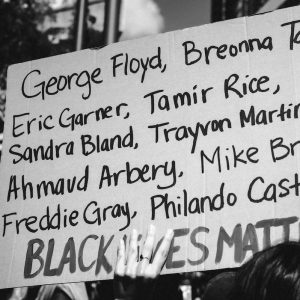 George Floyd, Breonna T
Eric Garner, Tamir Rice,
Sandra Bland, Trayvon Martin
Ahmaud Arbery, Mike Br
Freddie Gray, Philando Cast
BLACK LIVES MATT